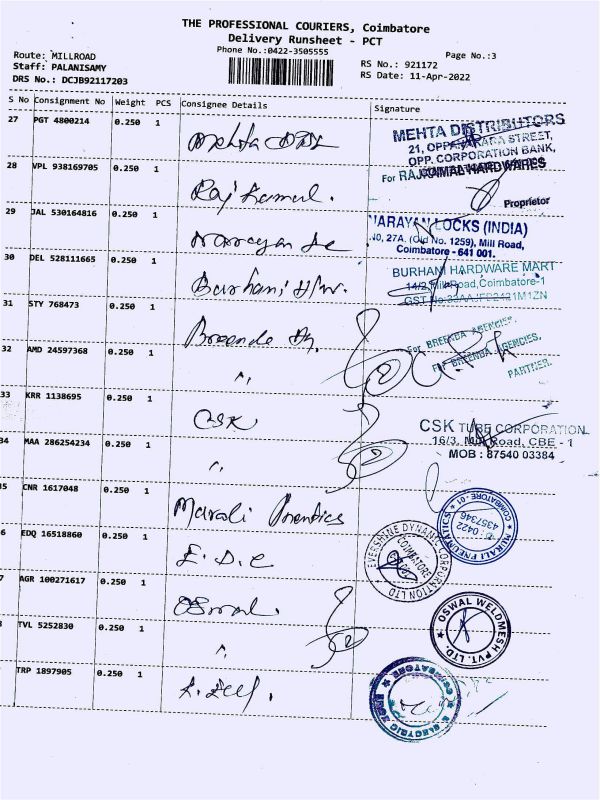 THE PROFESSIONAL COURIERS, Coimbatore
Delivery Runsheet - PCT
Phone No.:0422-3505555
Page No.:3
Route: MILLROAD
Staff: PALANISAMY
DRS No.: DCJB92117203
RS No.: 921172
RS Date: 11-Apr-2022
S No Consignment No Weight PCS Consignee Details Signature
27 PGT 4800214 0.250 1
MEHTA DISTRIBUTORS
STREET,
OPP. CORPORATION BANK,
28 VPL 938169705 0.250 1 Raj Kamal.
For RAJKAMAL HARDWARES
Proprietor
29 JAL 530164816 0.250 1 Narayan
NARAYAN LOCKS (INDIA)
27A. (Old No. 1259), Mill Road,
Coimbatore - 641 001.
30 DEL 528111665 0.250 1 Burhani H/w.
BURHANI HARDWARE MART
14/2, Mill Road, Coimbatore-1
GST No.
31 STY 768473 0.250 1
For BREENDA AGENCIES,
For BREENDA AGENCIES,
PARTNER.
32 AMD 24597368 0.250 1 "
33 KRR 1138695 0.250 1 CSK
CSK TUBE CORPORATION
16/3, Mill Road, CBE - 1
MOB : 87540 03384
34 MAA 286254234 0.250 1 "
5 CNR 1617048 0.250 1 Murali
MURALI PNEUMATICS
COIMBATORE - 01
0422
4357346
6 EDQ 16518860 0.250 1 E.D.C
EVERSHINE DYNAMIC CORPORATION LTD
COIMBATORE
7 AGR 100271617 0.250 1 Oswal.
OSWAL WELDMESH PVT. LTD.
TVL 5252830 0.250 1 "
TRP 1897905 0.250 1
COIMBATORE
ELECTRIC